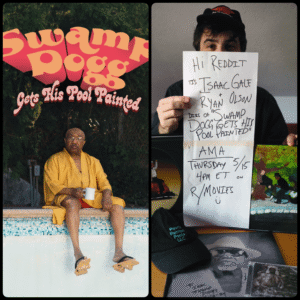 Swamp
Dogg
Gets His Pool Painted
Hi REDDIT
ISAAC GALE
+ RYAN OLSON
"SWAMP
DOGG GETS HIS
POOL PAINTED"
AMA
THURSDAY 5/15
4PM ET ON
R/MOVIES